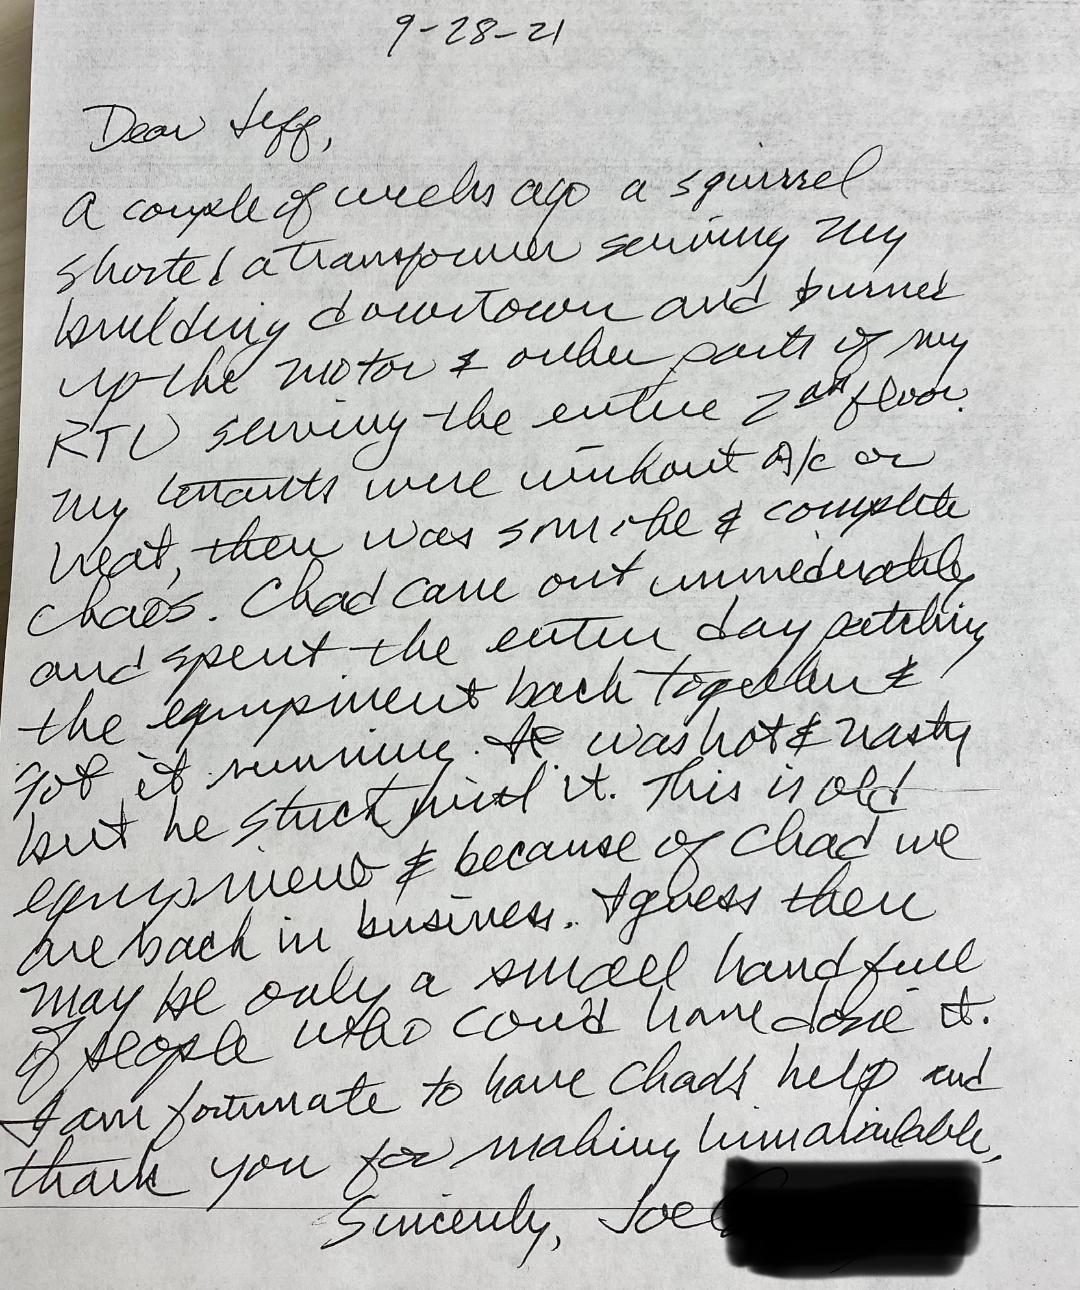 9-28-21
Dear Jeff,
A couple of weeks ago a squirrel
shorted a transformer serving my
building downtown and burned
up the motor & other parts of my
RTU serving the entire 2nd floor.
My tenants were without A/c or
heat, there was smoke & complete
chaos. Chad came out immediately
and spent the entire day patching
the equipment back together &
got it running. It was hot & nasty
but he stuck with it. This is old
equipment & because of Chad we
are back in business. I guess there
may be only a small handfull
of people who could have done it.
I am fortunate to have Chad's help and
thank you for making him available,
Sincerely, Joe